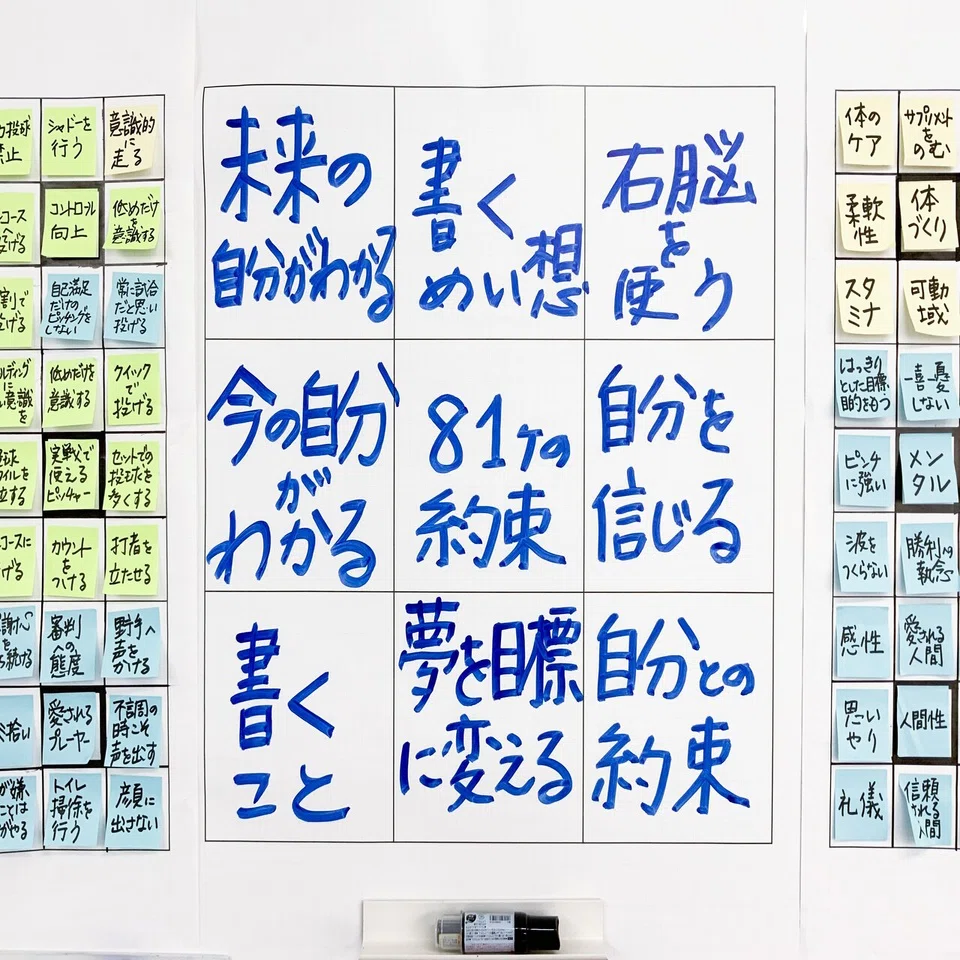 シャドーを
行う
意識的
に
走る
コントロール
向上
低めだけ
を
意識する
自己満足
だけの
ピッチングを
しない
常に試合
だと思い
投げる
低めだけを
意識する
クイック
で
投げる
実戦で
使える
ピッチャー
セットでの
投球を
多くする
カウント
を
つける
打者を
立たせる
審判
への
態度
野手へ
声を
かける
愛される
プレーヤー
不調の
時こそ
声を出す
トイレ
掃除を
行う
顔に
出さない
未来の
自分がわかる
書く
めい想
右脳
を
使う
今の自分
が
わかる
81ヶの
約束
自分を
信じる
書く
こと
夢を目標
に変える
自分との
約束
体の
ケア
サプリメント
を
のむ
柔軟
性
体
づくり
スタ
ミナ
可動
域
はっきり
とした目標
目的をもつ
一喜一憂
しない
ピンチ
に強い
メン
タル
波を
つくらない
勝利への
執念
感性
愛される
人間
思い
やり
人間性
礼儀
信頼
される
人間